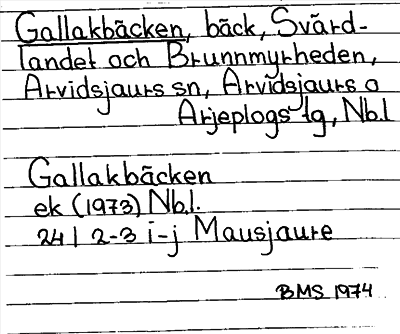 Gallakbäcken, bäck, Svärd-
landet och Brunnmyrheden,
Arvidsjaurs sn, Arvidsjaurs o
Arjeplogs tg, Nb.l
Gallakbäcken
ek (1973) Nb.l.
24 I 2-3 i-j Mausjaure
BMS 1974